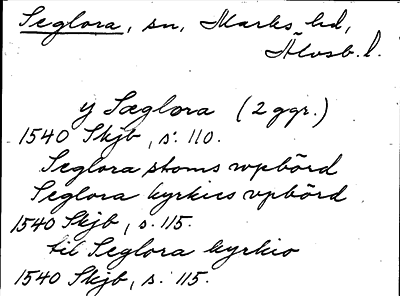 Seglora, sn, Marks hd,
Älvsb. l.
y Sæglora (2 ggr.)
1540 Skjb, s. 110.
Seglora stoms wpbörd
Seglora kyrkies vpbörd
1540 Skjb, s. 115.
til Seglora kyrkio
1540 Skjb, s. 115.